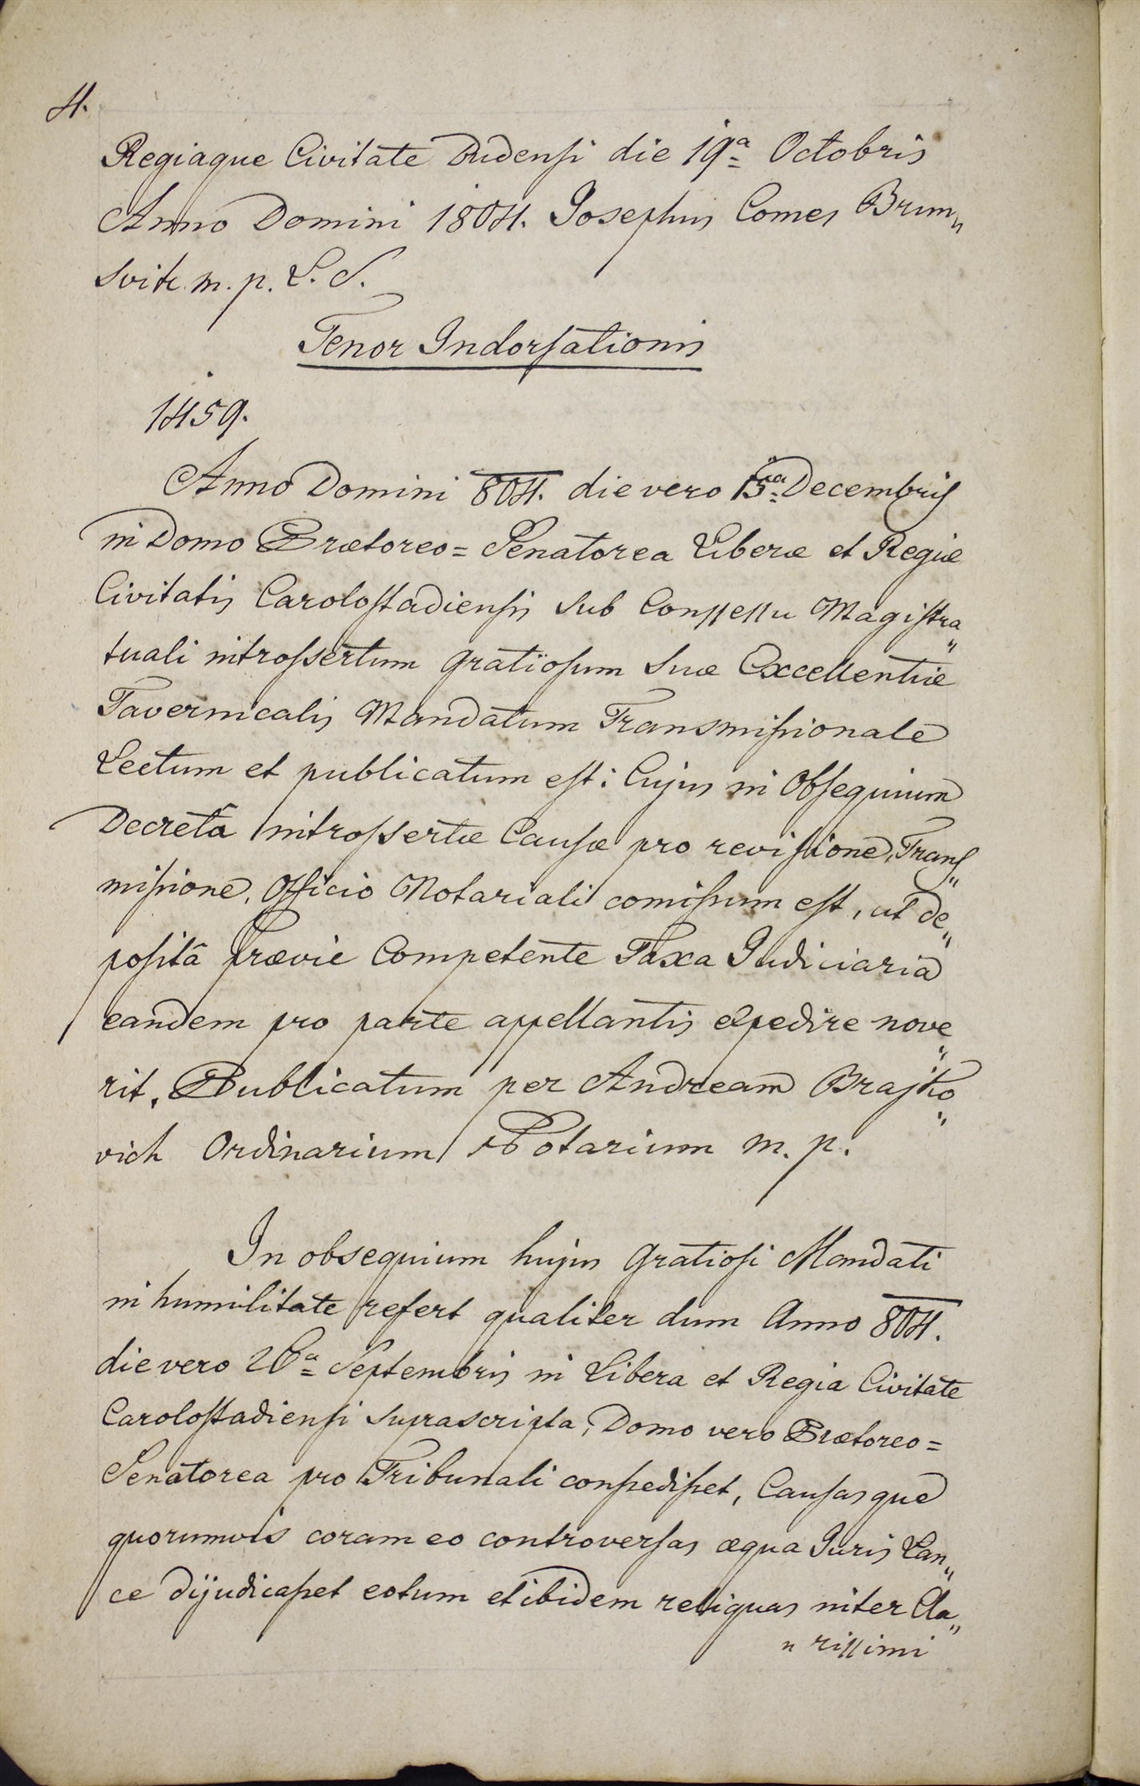 4.
Regiaque Civitate Budensi die 19ª Octobris
Anno Domini 1804. Josephus Comes Brun„
svik m. p. L. S.
Tenor Indorsationis
1459.
Anno Domini 804. die vero 15ta Decembris
in Domo Prætoreo= Senatorea Liberæ et Regiæ
Civitatis Carolostadiensis sub Conssessu Magistra„
tuali introssertum gratiosum Suæ Excellentiæ
Tavernicalis Mandatum Transmissionale
Lectum et publicatum est: Cujus in Obsequium
Decretâ introssertæ Causæ pro revisione, Trans„
missione, Officio Notariali comissum est, ut de„
positâ prævie Competente Taxa Judiciaria
eandem pro parte appellantis expedire nove„
rit. Publicatum per Andream Brajko„
vich Ordinarium Notarium m. p.
In obsequium hujus Gratiosi Mandati
in humilitate refert qualiter dum Anno 804.
die vero 26ª Septembris in Libera et Regia Civitate
Carolostadiensi suprascripta, Domo vero Prætoreo=
Senatorea pro Tribunali conssedisset, Causasque
quorumvis coram eo controversas æqua Juris Lan„
ce dijudicasset eotum et ibidem reliquas inter Cla„
„ rissimi